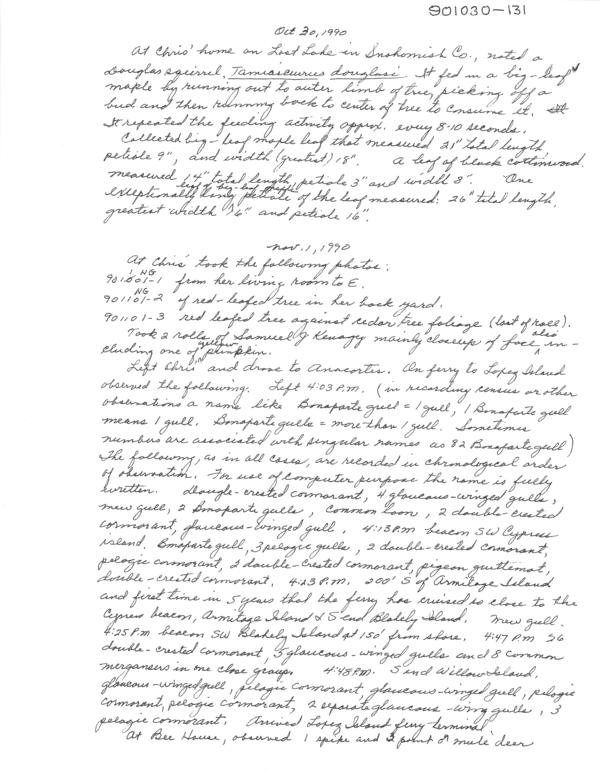 901030-131
Oct 30, 1990
At Chris' home on Lost Lake in Snohomish Co., noted a
Douglas squirrel, Tamiasciurus douglasi. It fed in a big-leaf
maple by running out to outer limb of tree, picking off a
bud and then running back to center of tree to consume it.
It repeated the feeding activity approx. every 8-10 seconds.
Collected big-leaf maple leaf that measured 21" total length,
petiole 9", and width (greatest) 18". A leaf of black cottonwood
measured 14" total length, petiole 3" and width 8". One
leaf of big-leaf maple
exceptionally long petiole of the leaf measured: 26" total length,
greatest width 16" and petiole 16".
Nov. 1, 1990
At Chris' took the following photos:
NG
901101-1 from her living room to E.
NG
901101-2 of red-leafed tree in her back yard.
901101-3 red leafed tree against cedar tree foliage (last of roll).
Took 2 rolls of Samuel J Kenagy mainly closeup of face also in-
cluding one of yellow pumpkin.
Left Chris' and drove to Anacortes. On ferry to Lopez Island
observed the following. Left 4:03 P.M. (in recording census or other
observations a name like Bonaparte gull = 1 gull, 1 Bonaparte gull
means 1 gull. Bonaparte gulls = more than 1 gull. Sometimes
numbers are associated with singular names as 82 Bonaparte gull)
The following, as in all cases, are recorded in chronological order
of observation. For use of computer purpose the name is fully
written. Double-crested cormorant, 4 glaucous-winged gulls,
mew gull, 2 Bonaparte gulls, common loon, 2 double-crested
cormorant, glaucous-winged gull. 4:13 P.M. beacon SW Cypress
island. Bonaparte gull, 3 pelagic gulls, 2 double-crested cormorant,
pelagic cormorant, 2 double-crested cormorant, pigeon guillemot,
double-crested cormorant. 4:23 P.M. 200' S of Armitage Island
and first time in 5 years that the ferry has cruised so close to the
Cypress beacon, Armitage Island & S end Blakely Island. Mew gull.
4:25 P.M beacon SW Blakely Island at 150' from shore. 4:47 P.M 26
double-crested cormorant, 5 glaucous-winged gulls and 8 common
mergansers in one close group. 4:48 P.M. S end Willow Island,
glaucous-winged gull, pelagic cormorant, glaucous-winged gull, pelagic
cormorant, pelagic cormorant, 2 separate glaucous-wing gulls, 3
pelagic cormorant. Arrived Lopez Island ferry terminal
At Bee House, observed 1 spike and 2 point mule deer